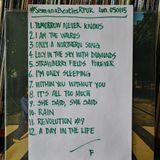 #SemanaBeatlesRPUC 050113
1. TOMORROW NEVER KNOWS
2. I AM THE WALRUS
3. ONLY A NORTHERN SONG
4. LUCY IN THE SKY WITH DIAMONDS
5. STRAWBERRY FIELDS FOREVER
6. I'M ONLY SLEEPING
7. WITHIN YOU WITHOUT YOU
8. IT'S ALL TOO MUCH
9. SHE SAID, SHE SAID
10. RAIN
11. REVOLUTION #9
12. A DAY IN THE LIFE
F